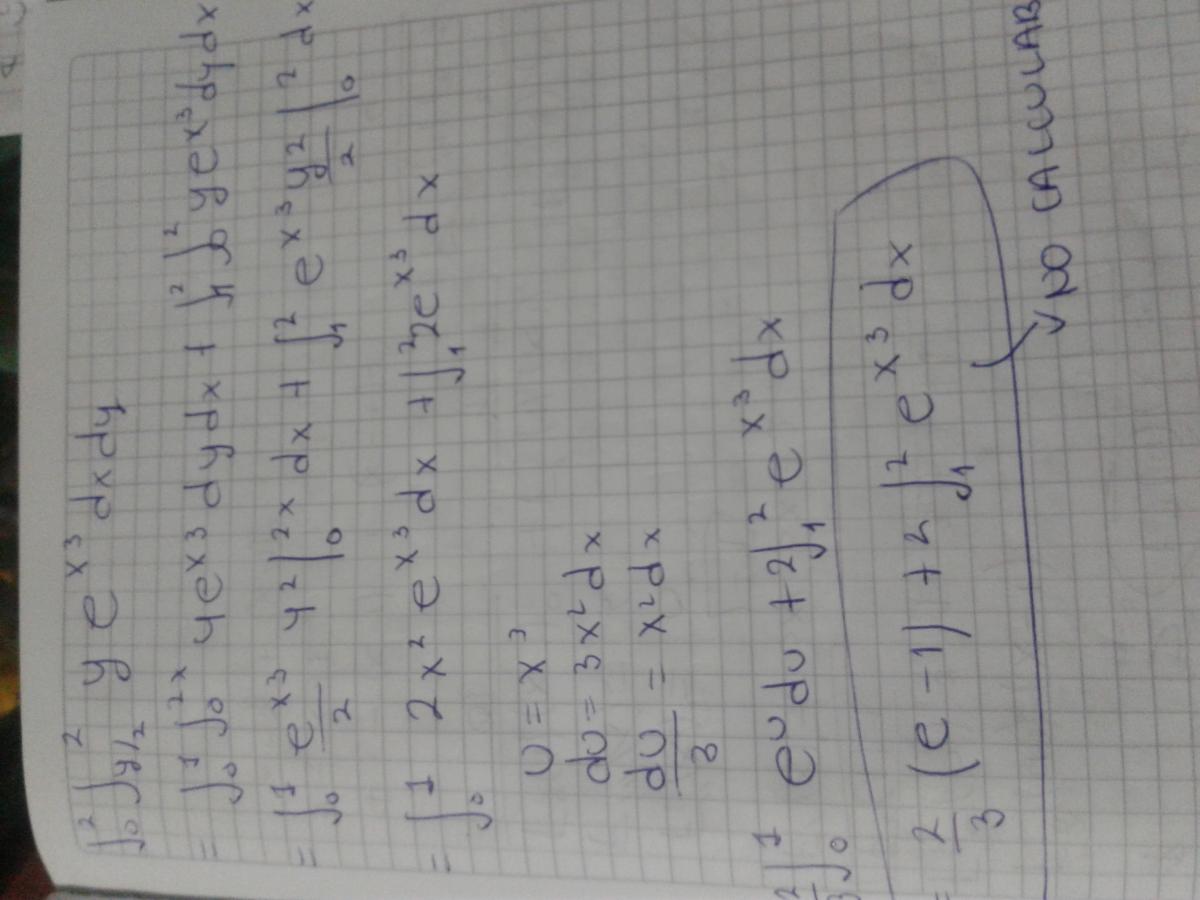 ∫₀² ∫_{y/2}² y e^{x³} dx dy
= ∫₀¹ ∫₀^{2x} y e^{x³} dy dx + ∫₁² ∫₀² y e^{x³} dy dx
= ∫₀¹ e^{x³}/2 y² |₀^{2x} dx + ∫₁² e^{x³} y²/2 |₀² dx
= ∫₀¹ 2x² e^{x³} dx + ∫₁² 2e^{x³} dx
u = x³
du = 3x² dx
du/3 = x² dx
2/3 ∫₀¹ e^u du + 2∫₁² e^{x³} dx
= 2/3 (e - 1) + 2 ∫₁² e^{x³} dx
NO CALCULAR